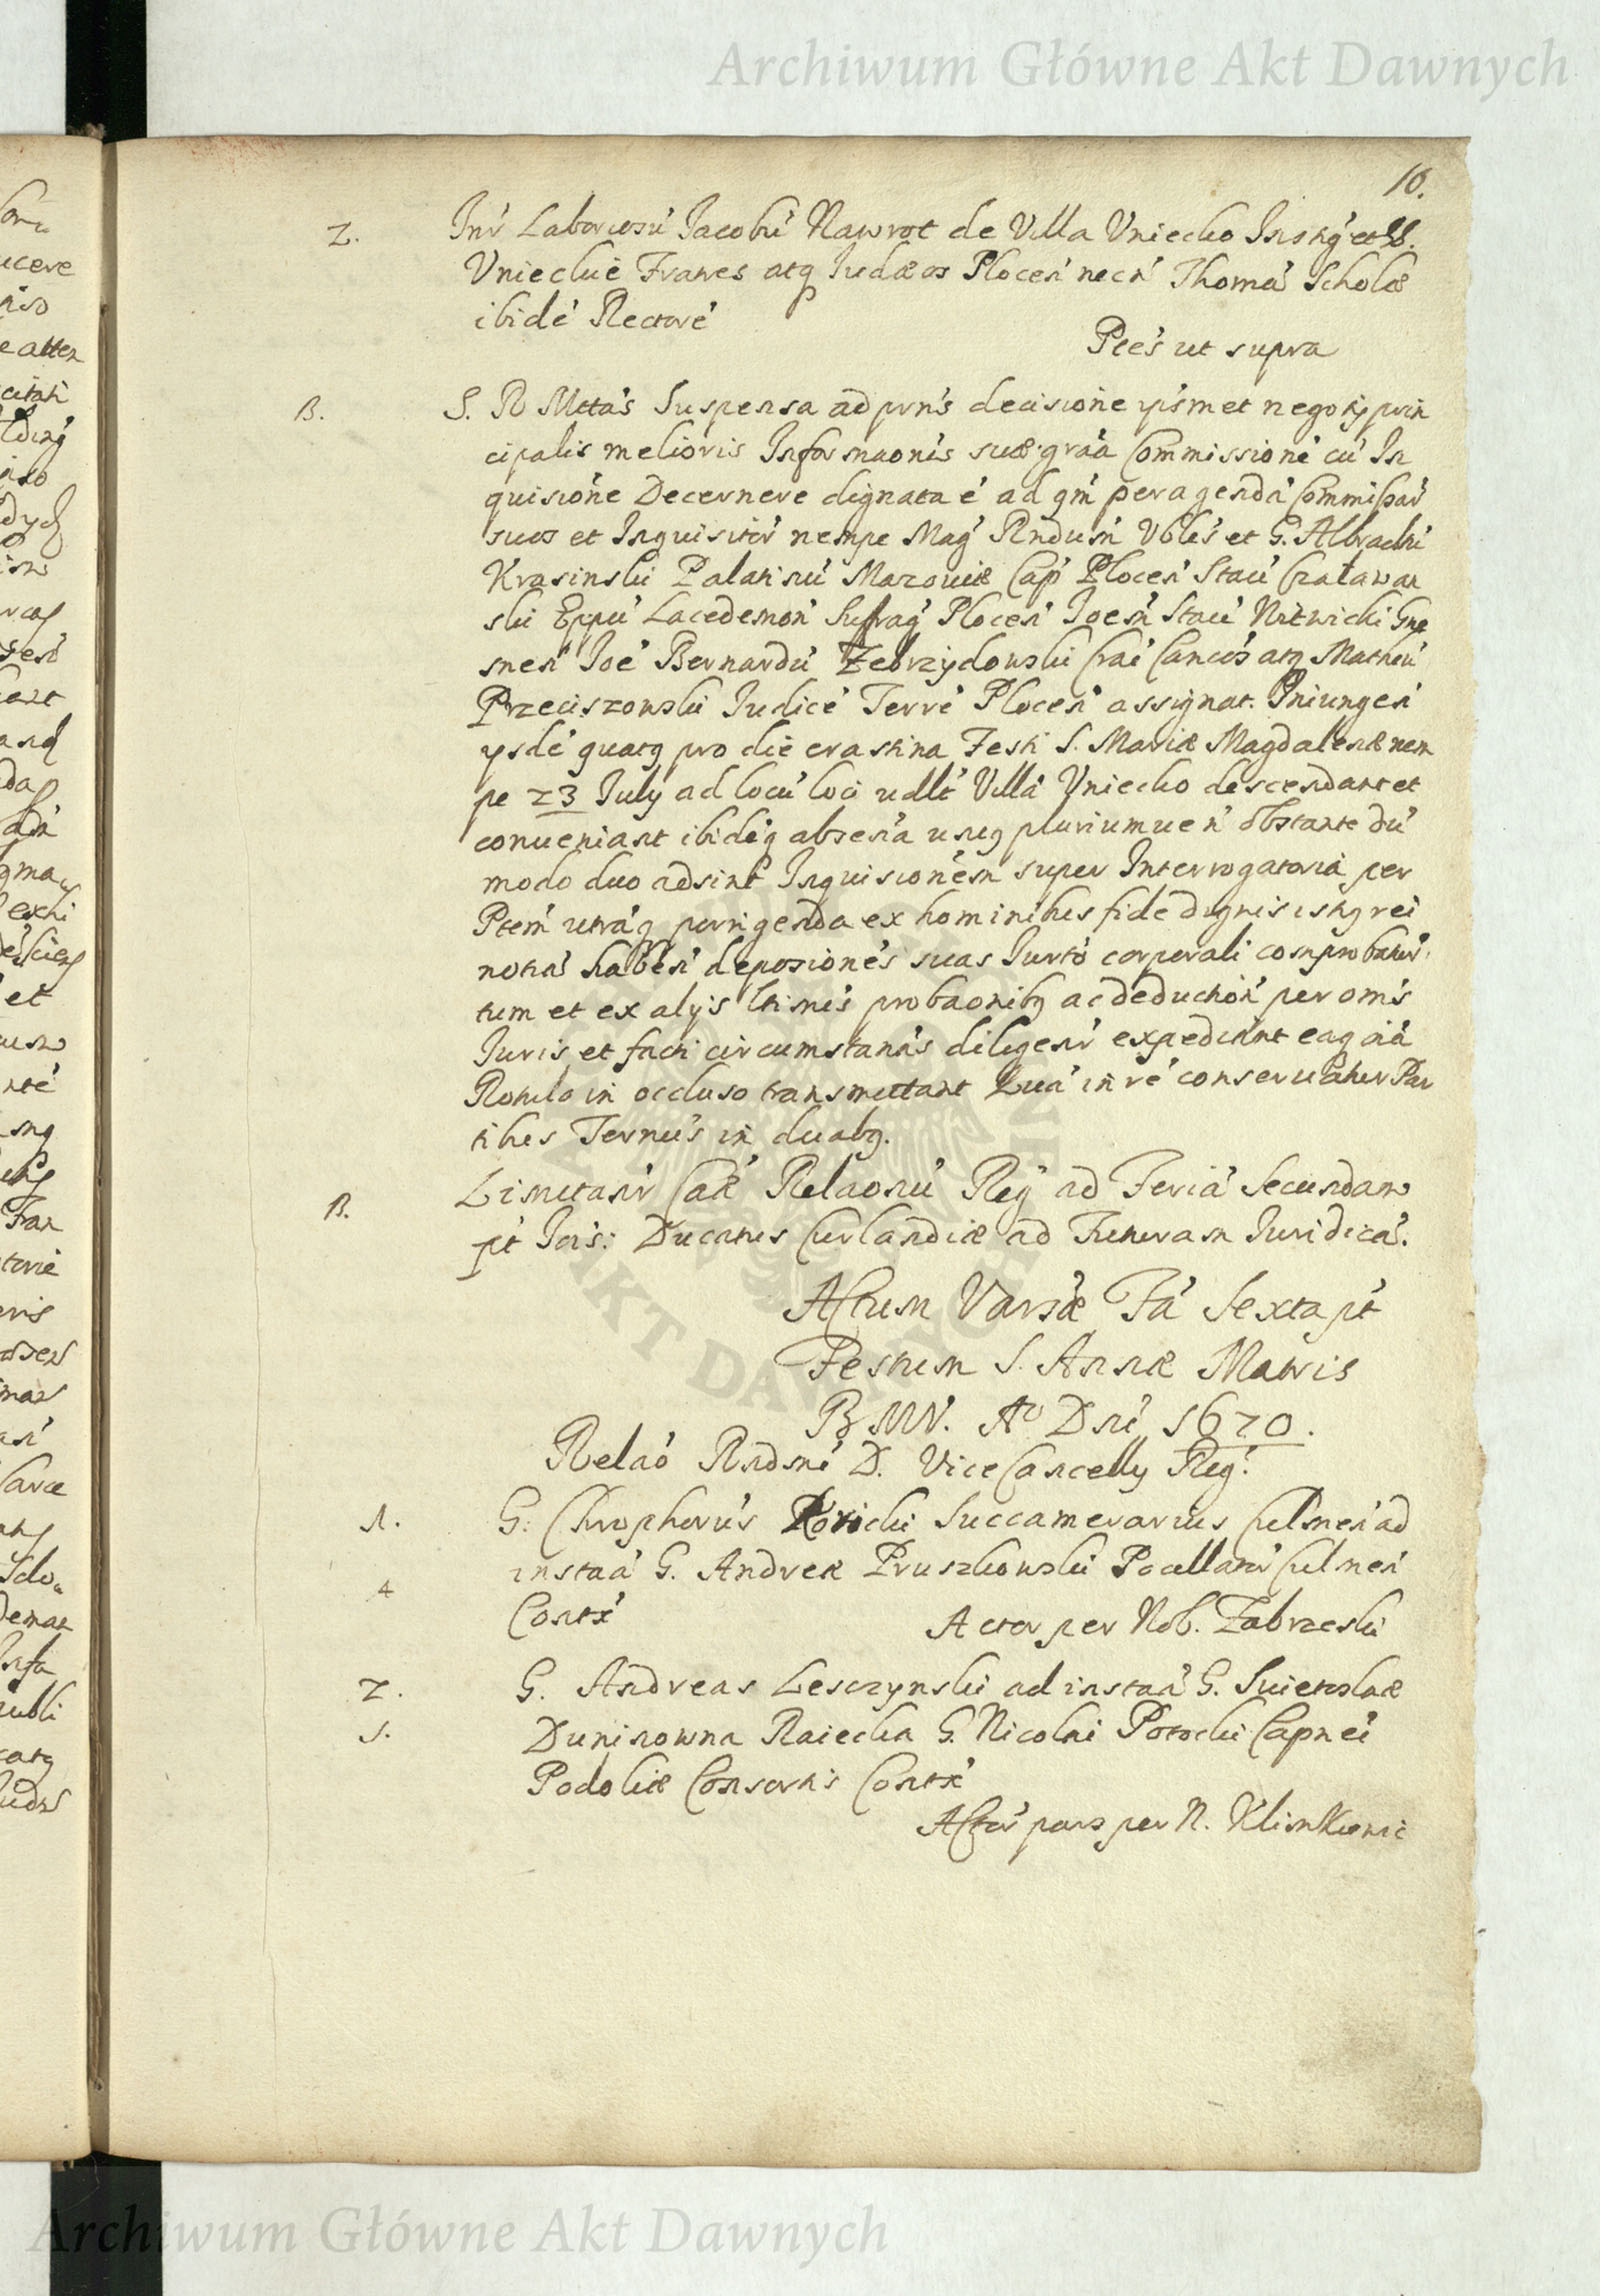 Archiwum Główne Akt Dawnych
10.
2. Int́ Laboriosú Jacobú Nawrot de Villa Uniecko Instig et
Unieckie Fratres atq Judæos Plocen̄ necń Thomá Scholæ
ibidé Rectoré
Ptes ut supra
B. S. R Mttas Suspensa ad prn̄s decisione ipsmet negotij prin
cipalis melioris Informaonis suæ grãa Commissioné cú In
quisione Decernere dignata é ad qm̄ peragendá Commissar̄
suos et Inquisitor̄ nempe Mag Rndum Vbles et G. Albrachti
Krasinski Palatinú Mazoviæ Cap̄ Plocen̄ Staú
ski Eppú Lacedemon̄ Sufrag Plocen̄ Joem Staú Gne
snen̄ Joé Bernardú Zebrzydowski Cancos atq Matheú
Przeciszowski Judicé Terré Plocen̄ assignat. Iniungen̄
ysdé quatq pro die crastina Festi S. Mariæ Magdalenæ nem
pe 23 July ad locú loci Villá Uniecko descendant et
conveniant ibidéq absenā unꝯ pluriumve ń obstante dú
modo duo adsint Inquisionem super Interrogatoria per
Ptem utráq porrigenda ex hominibus fide dignis istiq rei
notiá habén deposiones suas Jurto corporali comprobatur̄
tum et ex alijs ltimis probaonibꝯ ac deduction̄ per omś
Juris et facti circumstanās diligenr̄ expediant eaq oiá
Rotulo in occluso transmittant Quá in ré conservatur Par
tibus Ternús in duabꝯ.
B. Limitanr̄ Caæ Relaonú Reg ad Feriá Secundam
pt Ducatus Curlandiæ ad Futuram Juridicá.
Actum Varsæ Fá Sexta pt
Festum S. Annæ Matris
B MV. Aº Dni 1670.
Relaó Rndmi D. Vice Cancelly Reg.
1. G: Chrophorús Succamerarius Culmen̄ ad
4 instaá G. Andreæ Pruszkowski Pocillator̄ Culmen̄
Contx̄
Actor per Nob. Zabrzeski
2. G. Andreas Lesczynski ad instaá G.
S. Duninowna Raiecka G. Nicolai Potocki Capnei
Podoliæ Consortis Contx̄
Actor̄ pars per N. Klimkiewic
Archiwum Główne Akt Dawnych